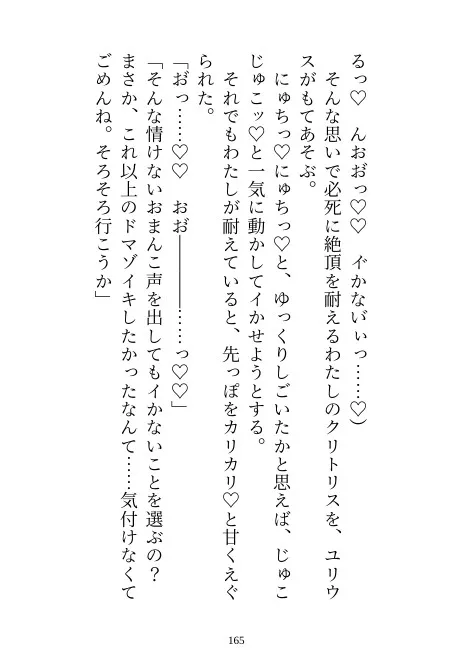 るっ♡　んおお゛っ♡♡　イ゛かな゛いぃっ……♡）
　そんな思いで必死に絶頂を耐えるわたしのクリトリスを、ユリウ
スがもてあそぶ。
　にゅちっ♡にゅちっ♡と、ゆっくりしごいたかと思えば、じゅこ
じゅこッ♡と一気に動かしてイかせようとする。
　それでもわたしが耐えていると、先っぽをカリカリ♡と甘くえぐ
られた。
「お゛っ……♡♡　おお゛―――……っ♡♡」
「そんな情けないおまんこ声を出してもイかないことを選ぶの？
まさか、これ以上のドマゾイキしたかったなんて……気付けなくて
ごめんね。そろそろ行こうか」
165